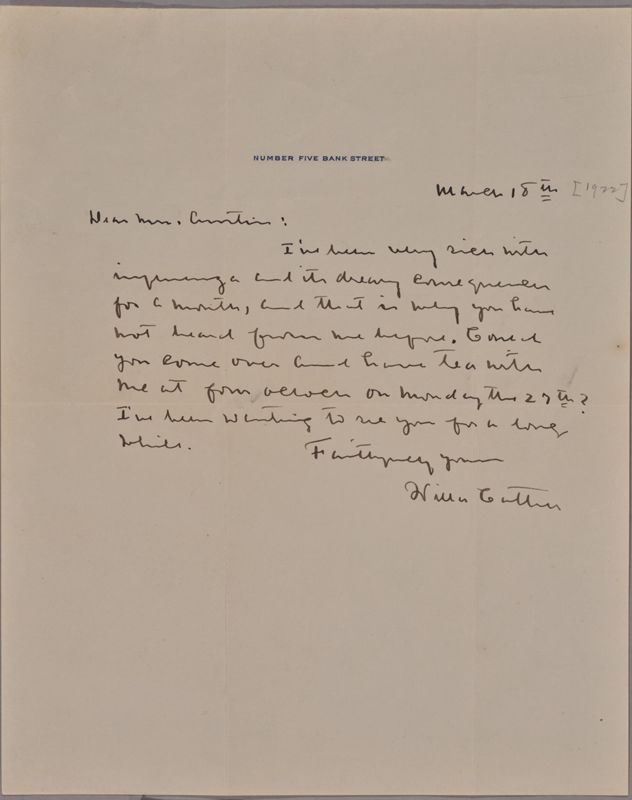 NUMBER FIVE BANK STREET
March 18th [1922]
Dear Mrs. Austin:
I've been very sick with
influenza and its dreary consequences
for a month, and that is why you have
not heard from me before. Could
you come over and have tea with
me at four o'clock on Monday the 27th?
I've been wanting to see you for a long
while.
Faithfully yours
Willa Cather